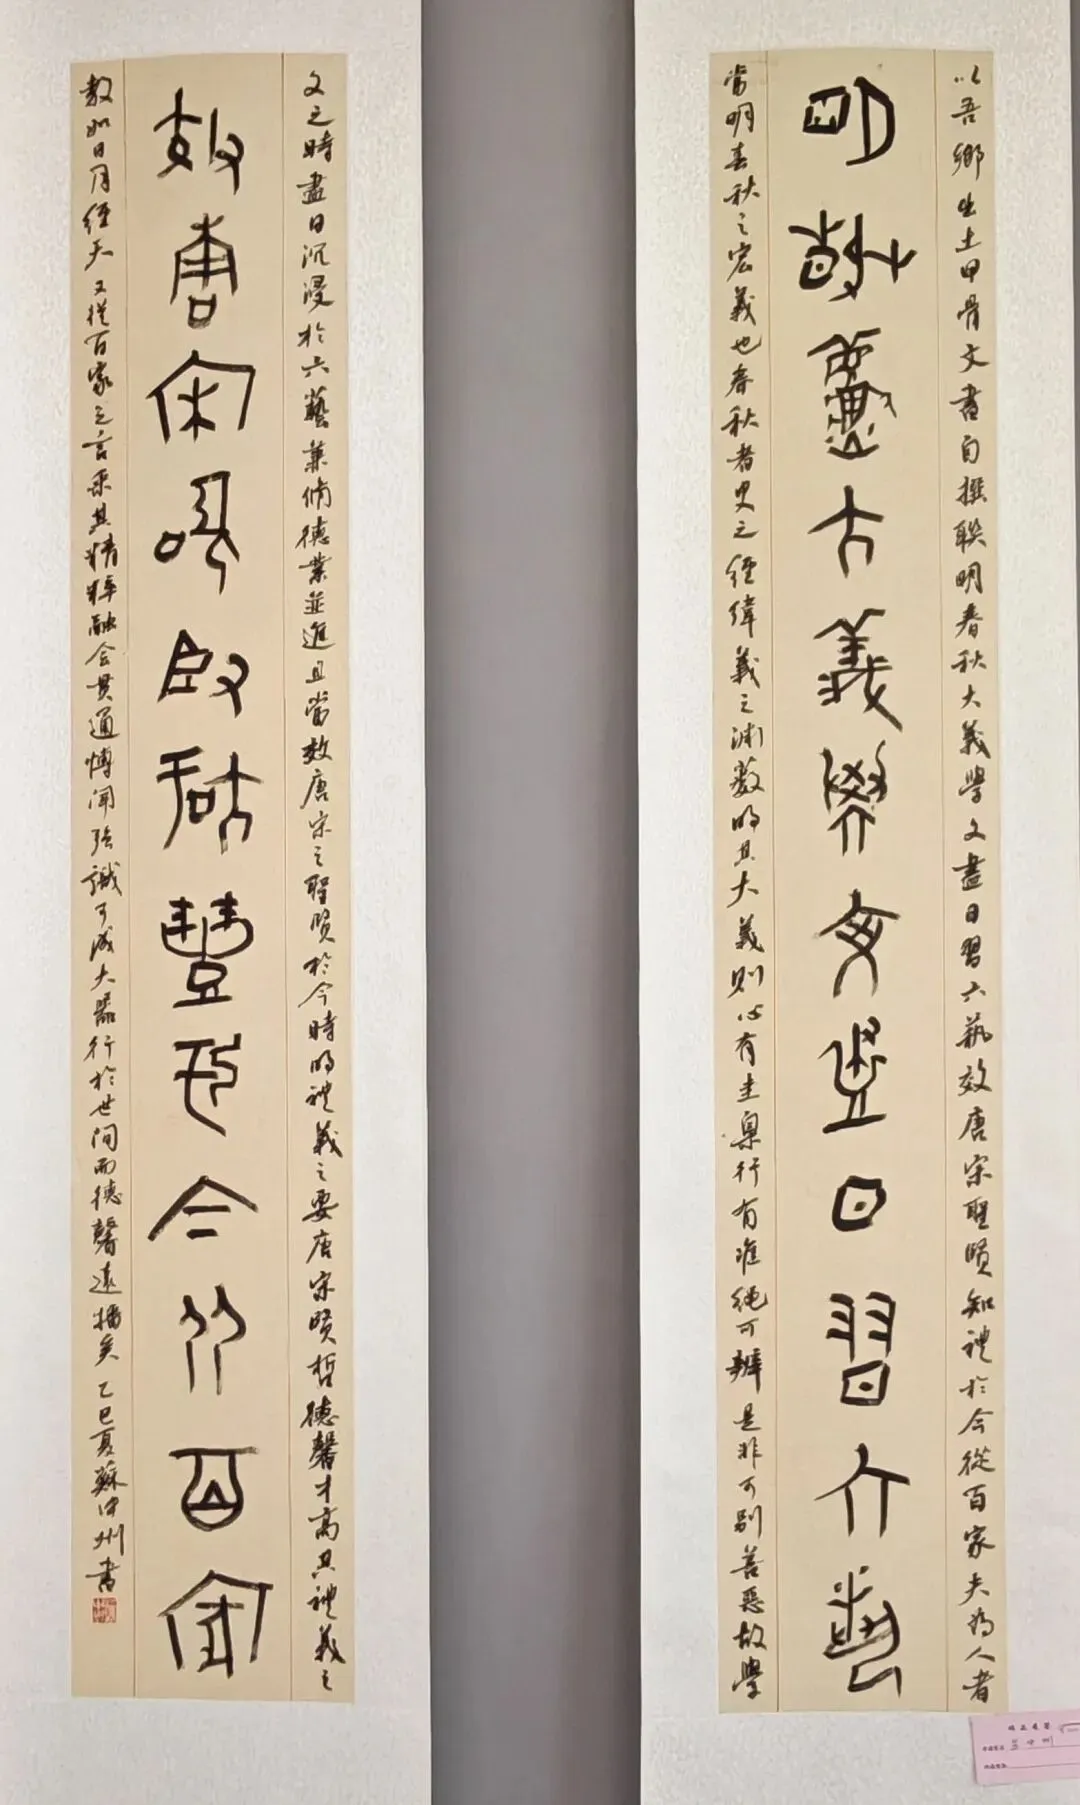 以吾鄉出土甲骨文書自撰聯明春秋大義學文盡日習六藝效唐宋聖賢知禮於今從百家夫為人者
明春秋大義學文盡日習六藝
當明春秋之宏義也春秋者史之經緯義之淵藪明其大義則心有圭臬行有准繩可辨是非可別善惡故學
文之時盡日沉浸於六藝兼脩德業並進且當效唐宋之聖賢於今時明禮義之要唐宋賢哲德馨才高其禮義之
效唐宋聖賢知禮於今從百家
教如日月經天又從百家之言采其精粹融会貫通博闻强識可成大器行於世间而德馨遠播矣 乙巳夏蘇中州書